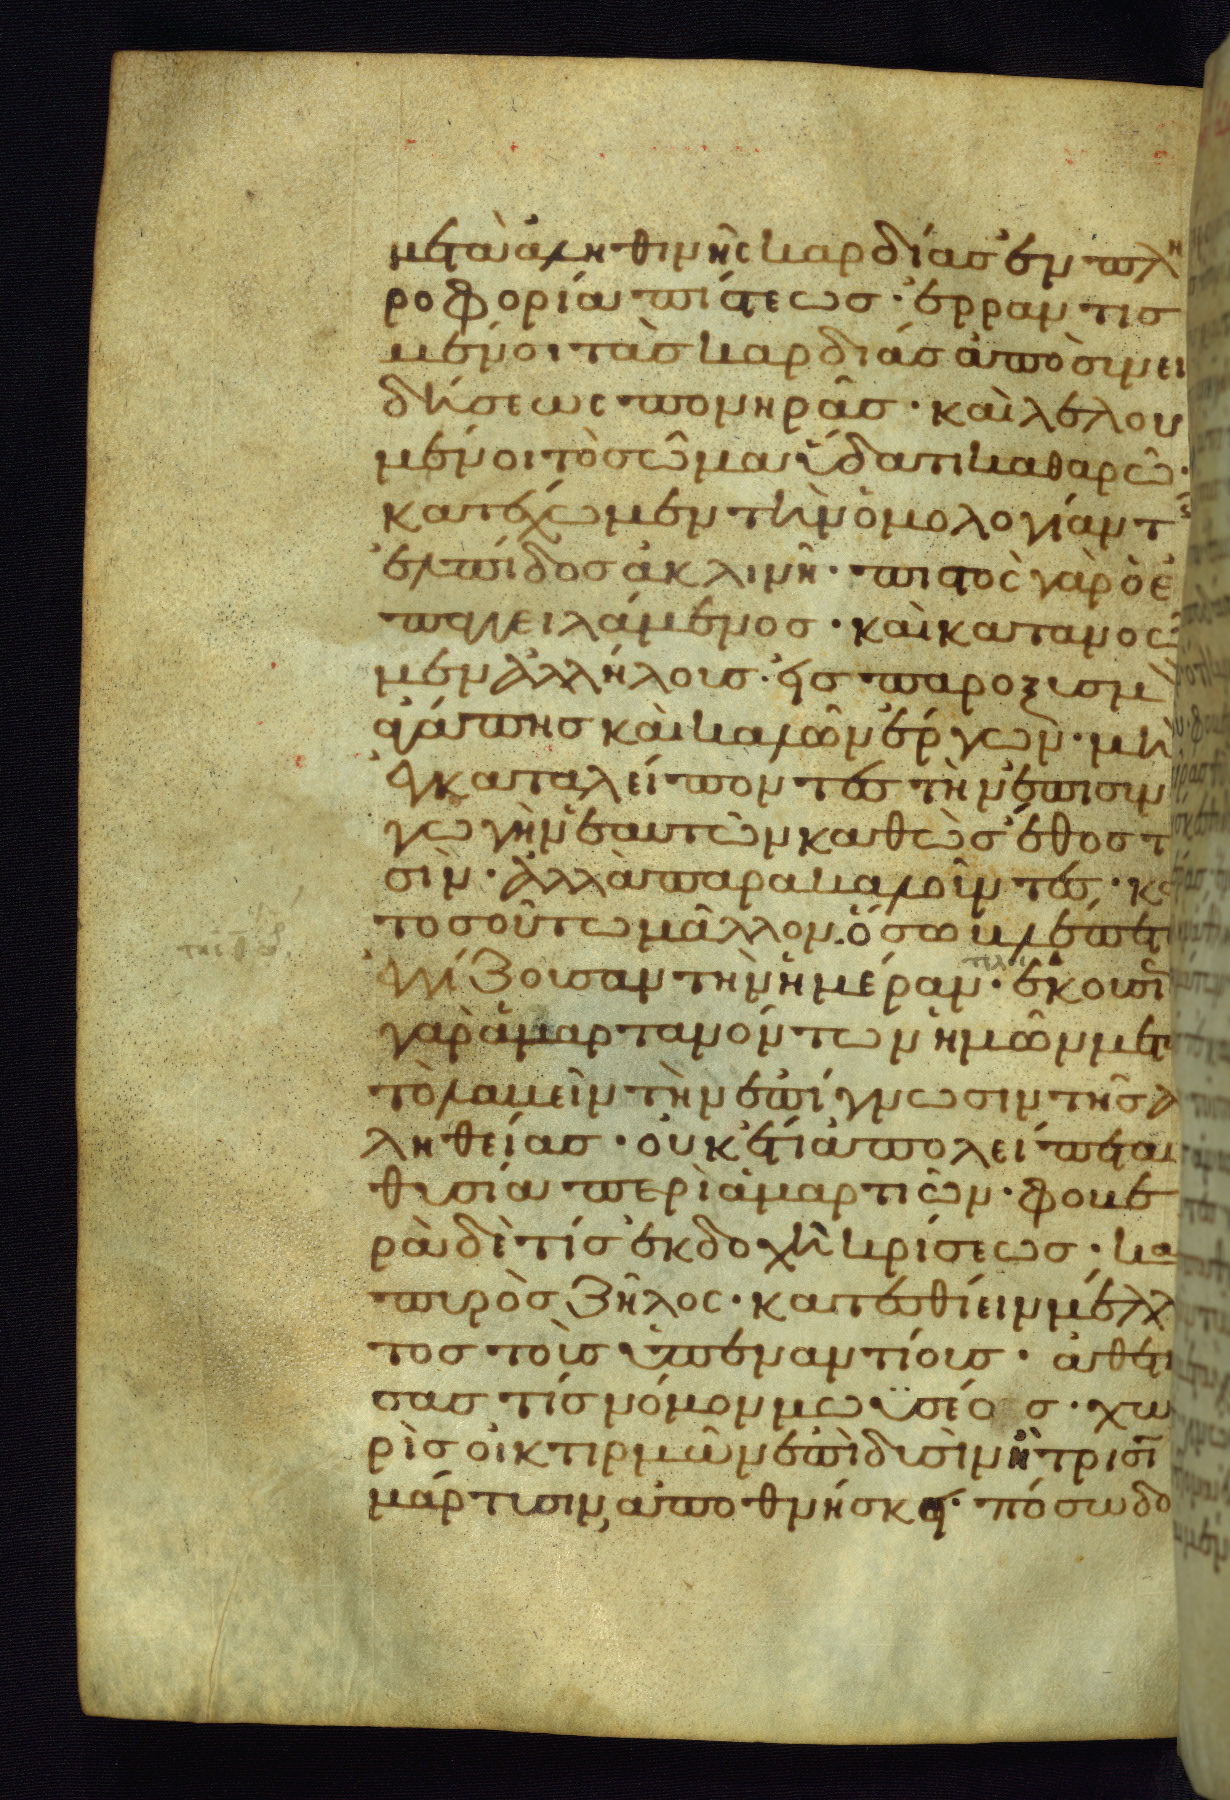 μετὰ ἀληθινῆς καρδίας ἐν πλη
ροφορία πίστεως · ἐρραντισ
μένοι τὰς καρδίας ἀπὸ συνει
δήσεως πονηρᾶς · καὶ λελου
μένοι τὸ σῶμα ὕδατι καθαρῶ ·
κατέχωμεν τὴν ὁμολογίαν τ
ἐλπίδος ἀκλινῆ · πιστὸς γὰρ ὁ ἐ
παγγειλάμενος · καὶ κατανοῶ
μεν ἀλλήλους · εἰς παροξυσμὸ
ἀγάπης καὶ καλῶν ἔργων · μὴ
ἐγκαταλείποντες τὴν ἐπισυν
γωγὴν ἑαυτῶν καθὼς ἔθος τ
σὶν · ἀλλὰ παρακαλοῦντες · κα
τοσούτω μᾶλλον · ὅσω βλέπετ
τῆ θ
ἐγγίζουσαν τὴν ἡμέραν · τέλος ἑκουσί
γὰρ ἁμαρτανόντων ἡμῶν μετ
τὸ λαβεῖν τὴν ἐπίγνωσιν τῆς ἀ
ληθείας · οὐκέτι ἀπολείπεται
θυσία περὶ ἁμαρτιῶν · φοβε
ρὰ δὲ τίς ἐκδοχὴ κρίσεως · κα
πυρὸς ζῆλος · κατεσθίειν μέλλ
τος τοὺς ὑπεναντίους · ἀθετή
σας τίς νόμον μωϋσέος · χω
ρὶς οἰκτιρμῶν ἐπὶ δυσὶν ἢ τρισὶ
μάρτυσιν, ἀποθνήσκει · πόσω δο